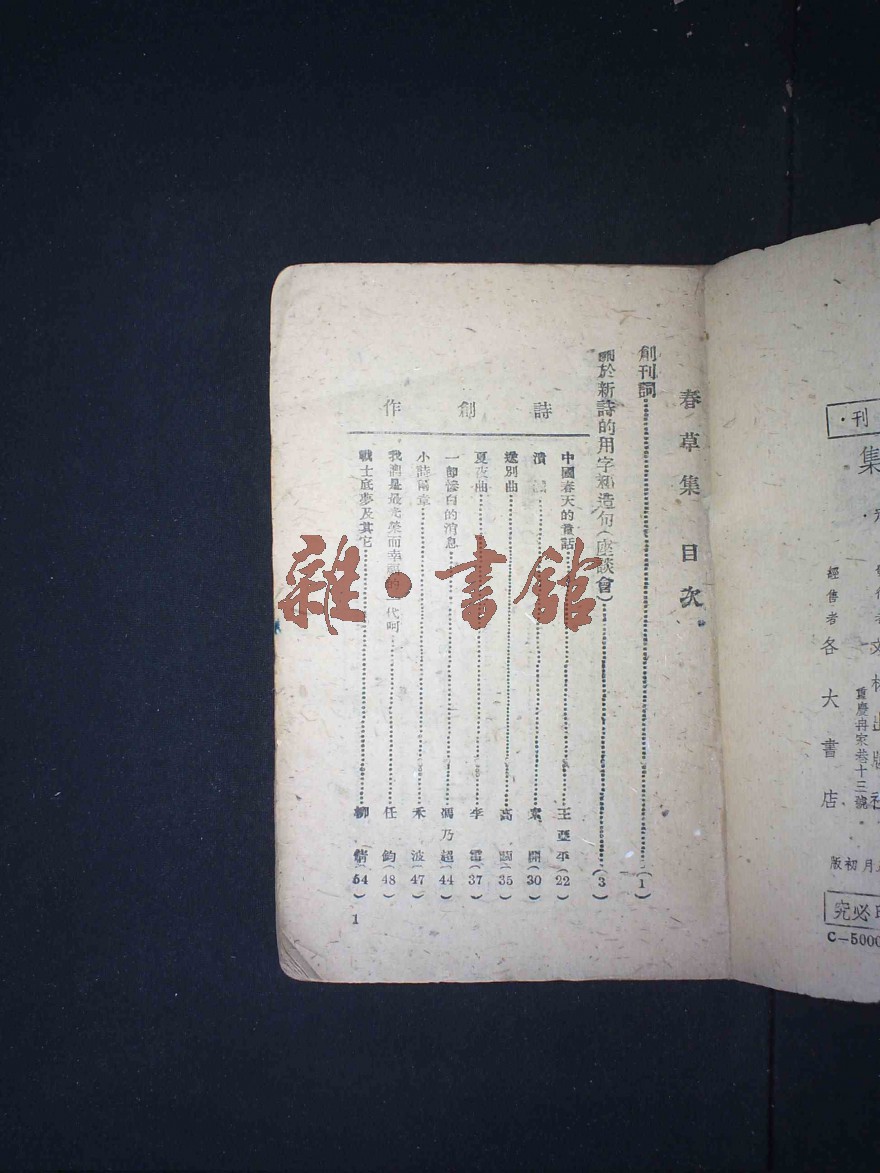 春草集 目次
創刊詞 (1)
關於新詩的用字和造句(座談會) (3)
詩創作
中國春天的童話 王亞平(22)
潰 (30)
送別曲 高蘭(35)
夏夜曲 李雷(37)
一節慘白的消息 馮乃超(44)
小詩兩章 禾波(47)
我們是最光榮而幸福的一代呵 任鈞(48)
戰士底夢及其它 柳倩(54)
1
雜·書館
刊·
集
重慶冉家巷十三號
經售者 各大書店
月初版
必究
C—5000